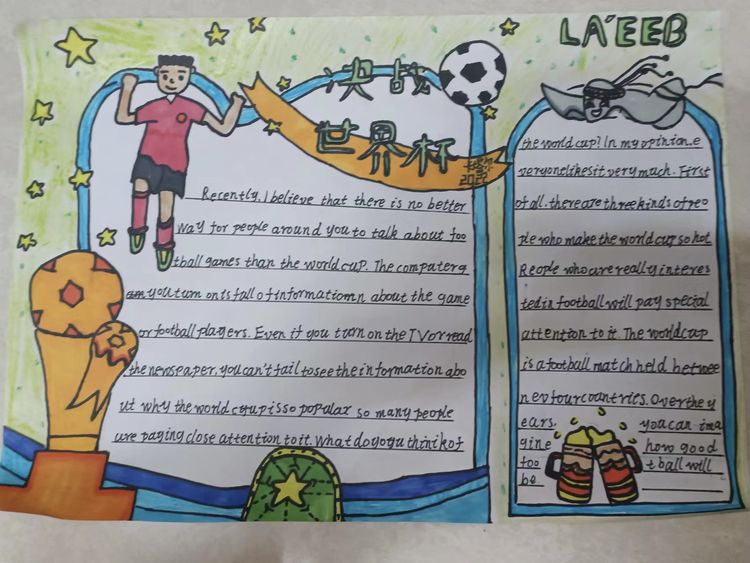 LA'EEB
决战
世界杯
卡塔尔
2022
Recently, I believe that there is no better
way for people around you to talk about foo
tball games than the world cup. The computer g
am you turn on is full of informationn about the game
or football players. Even if you turn on the TV or read
the newspaper, you can't fail to see the information abo
ut why the world cyup is so popular so many people
are paying close attention to it. What do yoyu thinik of
the world cup? In my opinion. e
veryone likes it very much. First
of all. there are three kinds of peo
ple who make the world cup so hot
People who are really interes
ted in football will pay special
attention to it. The world cup
is a football match held betwee
n ev four countries. Over the y
ears. you can ima
gine how good
foo tball will
be.